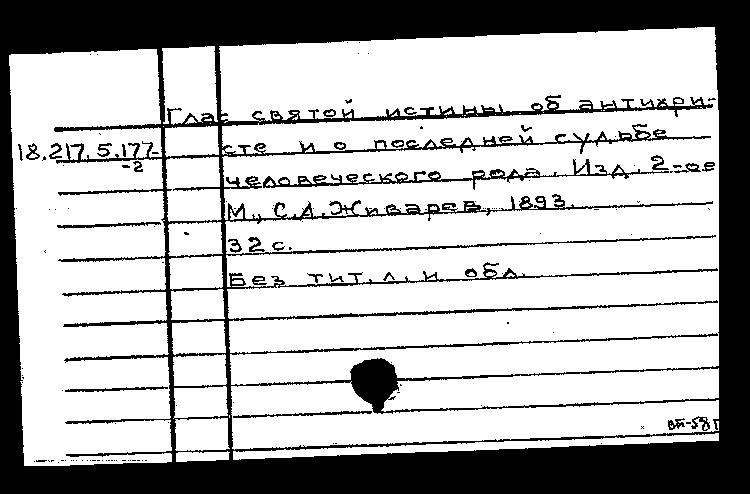 Глас святой истины об антихри-
18.217.5.177 сте и о последней судьбе
-2
человеческого рода. Изд. 2-ое
М., С.А. Живарев, 1893.
32 с.
Без тит. л. и обл.